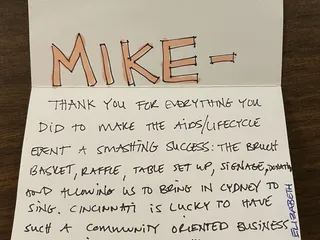 MIKE-
THANK YOU FOR EVERYTHING YOU
DID TO MAKE THE AIDS/LIFECYCLE
EVENT A SMASHING SUCCESS: THE BRUCH
BASKET, RAFFLE, TABLE SET UP, SIGNAGE, DONATION
AND ALLOWING US TO BRING IN CYDNEY TO
SING. CINCINNATI IS LUCKY TO HAVE
SUCH A COMMUNITY ORIENTED BUSINESS
ELIZABETH